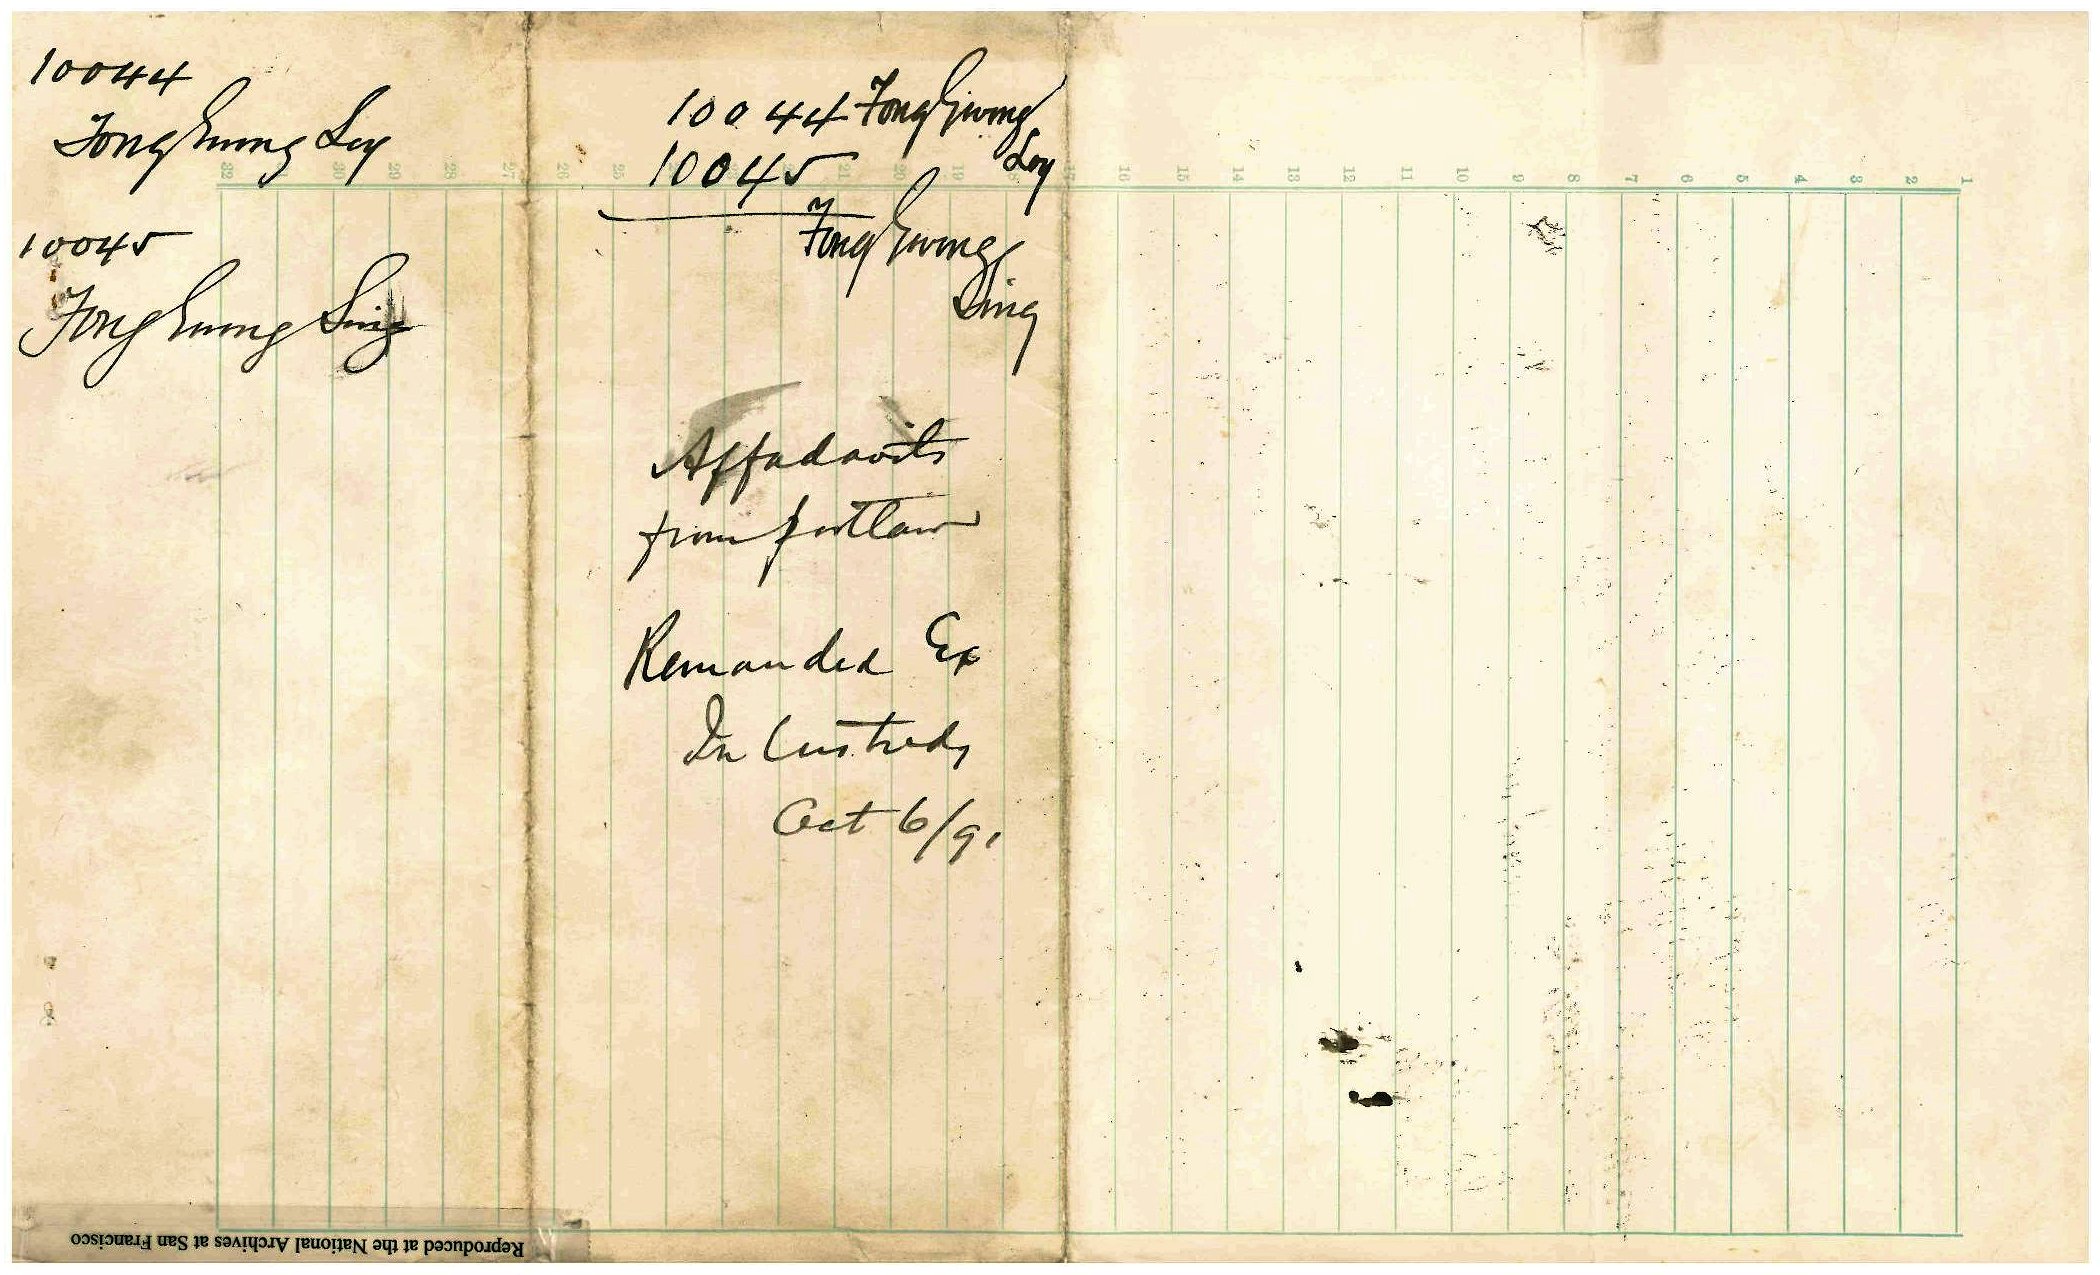 10044
Fong Gwong Loy
10045
Fong Gwong Sing
10044 Fong Gwong
Loy
10045
Fong Gwong
Sing
Affadavits
from
Remanded Ex
In Custody
Oct 6/91
32 30 29 28 27 26 25 21 20 19 16 15 14 13 12 11 10 9 8 7 6 5 4 3 2 1
Reproduced at the National Archives at San Francisco